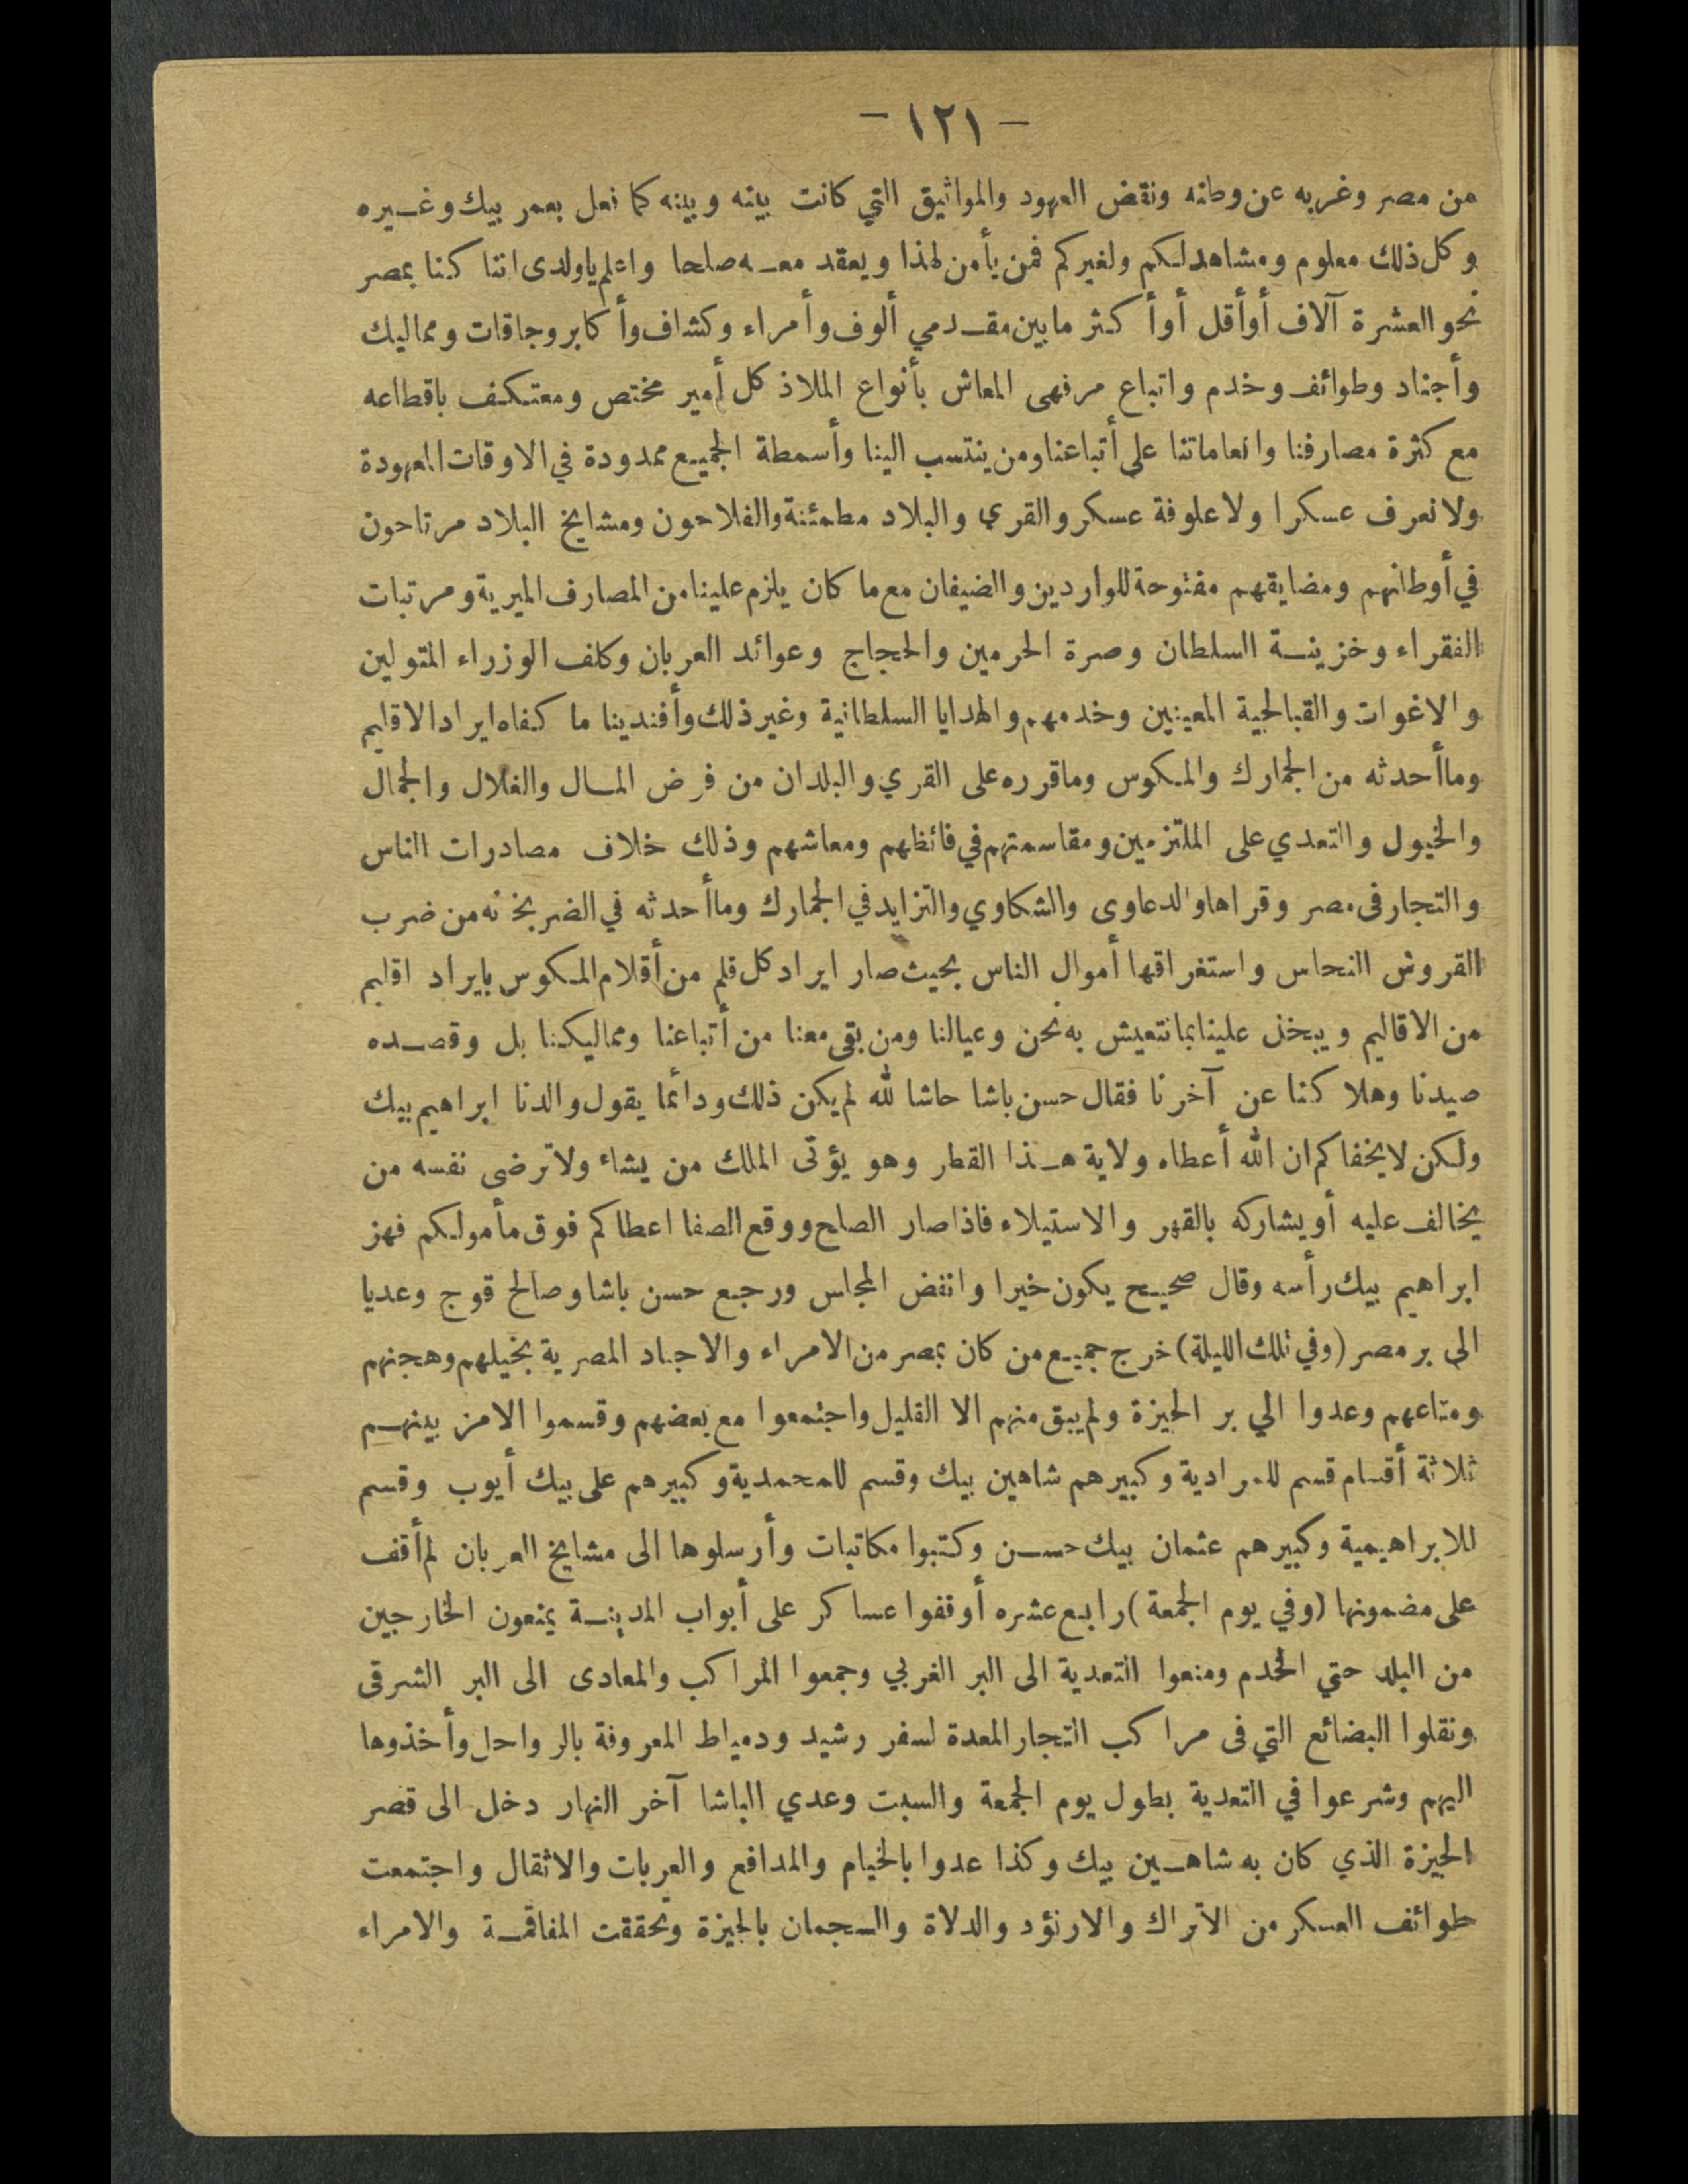 - ١٢١ -
من مصر وغربه عن وطنه ونقض العهود والمواثيق التي كانت بينه وبينه كما فعل بعمر بيك وغيره
وكل ذلك معلوم ومشاهد لكم ولغيركم فمن يأمن لهذا ويعقد معه صلحا واعلم ياولدى اننا كنا بمصر
نحو العشرة آلاف أو أقل أو أكثر ما بين مقدمي ألوف وأمراء وكشاف وأكابر وجاقات ومماليك
وأجناد وطوائف وخدم واتباع مرفهى المعاش بأنواع الملاذ كل أمير مختص ومعتكف باقطاعه
مع كثرة مصارفنا وانعاماتنا على أتباعنا ومن ينتسب الينا وأسمطة الجميع ممدودة في الاوقات المعهودة
ولا نعرف عسكرا ولا علوفة عسكر والقري والبلاد مطمئنة والفلاحون ومشايخ البلاد مرتاحون
في أوطانهم ومضايقهم مفتوحة للواردين والضيفان مع ما كان يلزم علينا من المصارف الميرية ومرتبات
الفقراء وخزينة السلطان وصرة الحرمين والحجاج وعوائد العربان وكلف الوزراء المتولين
والاغوات والقبالجية المعينين وخدمهم والهدايا السلطانية وغير ذلك وأفندينا ما كفاه ايراد الاقليم
وما أحدثه من الجمارك والمكوس وما قرره على القري والبلدان من فرض المال والغلال والجمال
والخيول والتعدي على الملتزمين ومقاسمتهم في فائظهم ومعاشهم وذلك خلاف مصادرات الناس
والتجار فى مصر وقراها والدعاوى والشكاوي والتزايد في الجمارك وما أحدثه في الضربخانه من ضرب
القروش النحاس واستغراقها أموال الناس بحيث صار ايراد كل قلم من أقلام المكوس بايراد اقليم
من الاقاليم ويبخل علينا بما نتعيش به نحن وعيالنا ومن بقى معنا من أتباعنا ومماليكنا بل وقصده
صيدنا وهلا كنا عن آخرنا فقال حسن باشا حاشا لله لم يكن ذلك ودائما يقول والدنا ابراهيم بيك
ولكن لا يخفاكم ان الله أعطاه ولاية هذا القطر وهو يؤتى الملك من يشاء ولا ترضى نفسه من
يخالف عليه أو يشاركه بالقهر والاستيلاء فاذا صار الصلح ووقع الصفا اعطاكم فوق مأمولكم فهز
ابراهيم بيك رأسه وقال صحيح يكون خيرا وانفض المجلس ورجع حسن باشا وصالح قوج وعديا
الى بر مصر (وفي تلك الليلة) خرج جميع من كان بمصر من الامراء والاجناد المصرية بخيلهم وهجنهم
ومتاعهم وعدوا الي بر الجيزة ولم يبق منهم الا القليل واجتمعوا مع بعضهم وقسموا الامر بينهم
ثلاثة أقسام قسم للمرادية وكبيرهم شاهين بيك وقسم للمحمدية وكبيرهم على بيك أيوب وقسم
للابراهيمية وكبيرهم عثمان بيك حسن وكتبوا مكاتبات وأرسلوها الى مشايخ العربان لم أقف
على مضمونها (وفي يوم الجمعة) رابع عشره أوقفوا عساكر على أبواب المدينة يمنعون الخارجين
من البلد حتي الخدم ومنعوا التعدية الى البر الغربي وجمعوا المراكب والمعادى الى البر الشرقى
ونقلوا البضائع التي فى مراكب التجار المعدة لسفر رشيد ودمياط المعروفة بالرواحل وأخذوها
اليهم وشرعوا في التعدية بطول يوم الجمعة والسبت وعدي الباشا آخر النهار دخل الى قصر
الجيزة الذي كان به شاهين بيك وكذا عدوا بالخيام والمدافع والعربات والاثقال واجتمعت
طوائف العسكر من الاتراك والارنؤد والدلاة والسجمان بالجيزة وتحققت المفاقمة والامراء